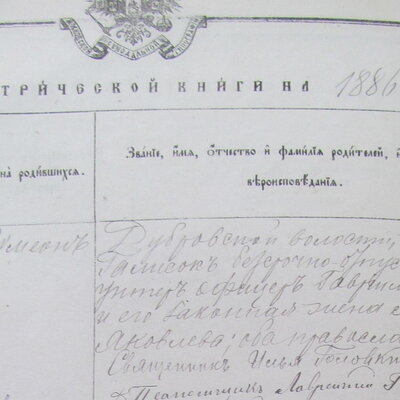 трической книги на 1886
на родившихся.
Званіе, имя, отчество и фамилія родителей, и
вѣроисповѣданія.
Дубровской волости,
безсрочно-отпус
унтеръ-офицеръ Гаврiил
и его законная жена
Яковлева; оба православ
Священникъ Илья
Псаломщикъ Лаврентій